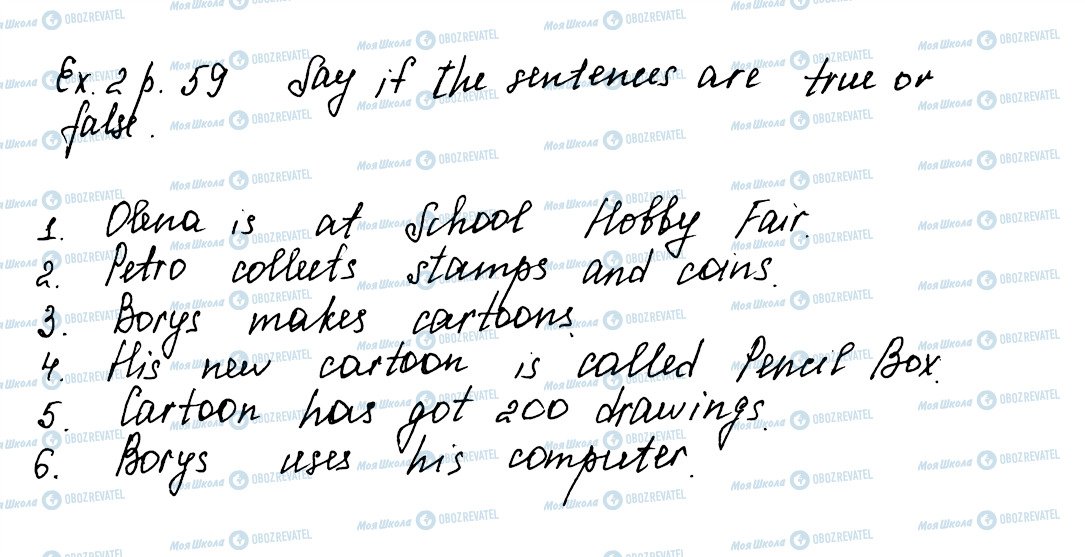 Ex. 2 p. 59 Say if the sentences are true or
false.
1. Olena is at School Hobby Fair.
2. Petro collects stamps and coins.
3. Borys makes cartoons.
4. His new cartoon is called Pencil Box.
5. Cartoon has got 200 drawings.
6. Borys uses his computer.
Моя Школа OBOZREVATEL